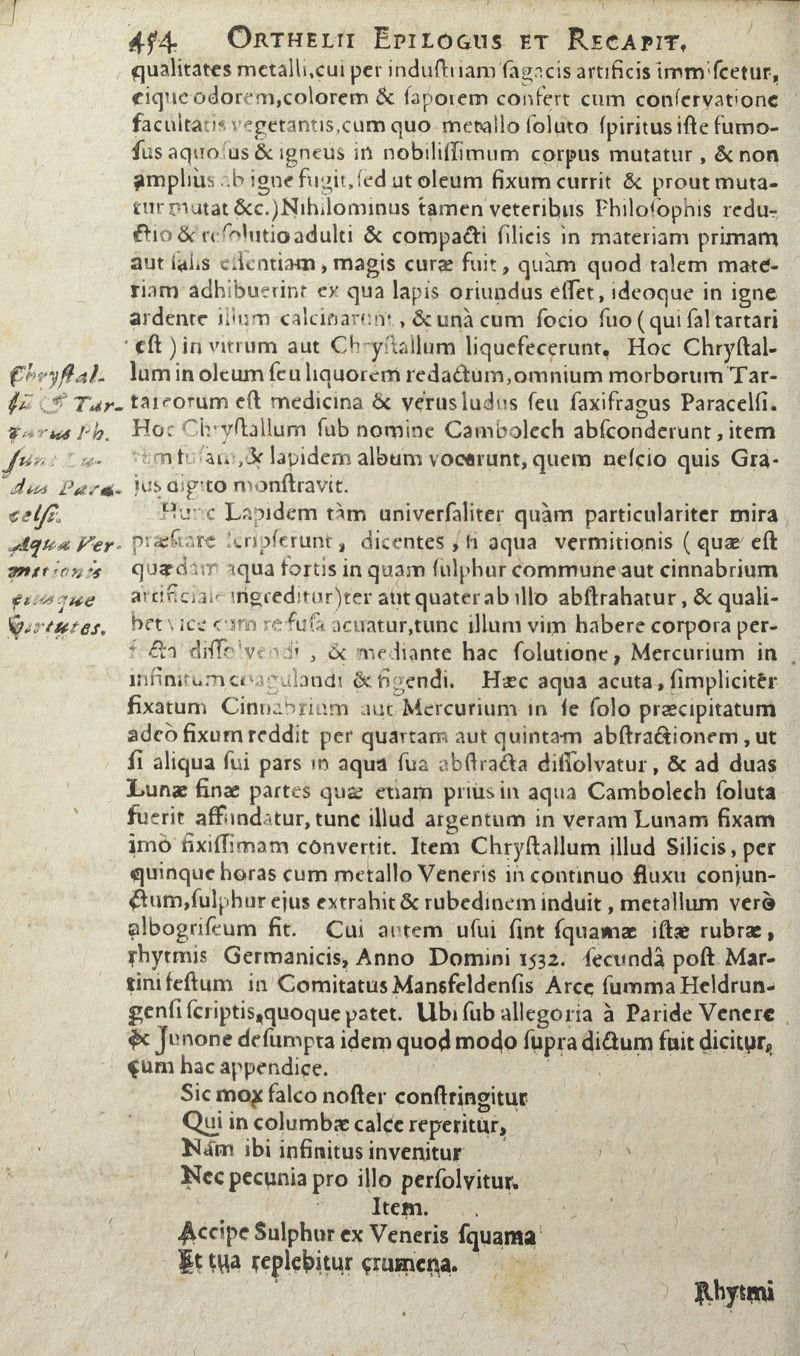 454 ORTHELII EPILOGUS ET RECAPIT,
qualitates metalli,cui per industriam sagacis artificis immiscetur,
eique odorem,colorem & saporem confert cum conservatione
facultatis vegetantis,cum quo metallo soluto spiritus iste fumo-
sus aquosus & igneus in nobilissimum corpus mutatur , & non
amplius ab igne fugit,sed ut oleum fixum currit & prout muta-
tur mutat &c.) Nihilominus tamen veteribus Philosophis redu-
ctio & resolutio adulti & compacti silicis in materiam primam
aut salis essentiam , magis curæ fuit, quàm quod talem mate-
riam adhibuerint ex qua lapis oriundus esset, ideoque in igne
ardente illum calcinarunt , & unà cum socio suo ( qui sal tartari
est ) in vitrum aut Chrystallum liquefecerunt. Hoc Chrystal-
lum in oleum seu liquorem redactum,omnium morborum Tar-
tareorum est medicina & verus ludus seu saxifragus Paracelsi.
Hoc Chrystallum sub nomine Cambolech absconderunt, item
& lapidem album vocarunt, quem nescio quis Gra-
jus digito monstravit.
Chrystal-
li & Tar-
Ph.
dus Para-
celsi.
Hunc Lapidem tàm universaliter quàm particulariter mira
præstare scripserunt, dicentes , si aqua vermitionis ( quæ est
quædam aqua fortis in quam sulphur commune aut cinnabrium
artificiale ingreditur)ter aut quater ab illo abstrahatur, & quali-
bet vice cum refusa acuatur,tunc illum vim habere corpora per-
fecta dissolvendi , & mediante hac solutione, Mercurium in
infinitum coagulandi & figendi. Hæc aqua acuta, simplicitèr
fixatum Cinnabrium aut Mercurium in se solo præcipitatum
adeò fixum reddit per quartam aut quintam abstractionem , ut
si aliqua sui pars in aqua sua abstracta dissolvatur , & ad duas
Lunæ finæ partes quæ etiam prius in aqua Cambolech soluta
fuerit affundatur, tunc illud argentum in veram Lunam fixam
imò fixissimam convertit. Item Chrystallum illud Silicis, per
quinque horas cum metallo Veneris in continuo fluxu conjun-
ctum,sulphur ejus extrahit & rubedinem induit, metallum verò
albogriseum fit. Cui autem usui sint squamæ istæ rubræ,
rhytmis Germanicis, Anno Domini 1532. secundâ post Mar-
tini festum in Comitatus Mansfeldensis Arce summa Heldrun-
gensi scriptis,quoque patet. Ubi sub allegoria à Paride Venere
& Junone desumpta idem quod modo supra dictum fuit dicitur,
cum hac appendice.
Aqua Ver-
mitionis
ejusque
virtutes.
Sic mox falco noster constringitur
Qui in columbæ calce reperitur,
Nàm ibi infinitus invenitur
Nec pecunia pro illo persolvitur.
Item.
Accipe Sulphur ex Veneris squama
Et tua replebitur crumena.
Rhytmi